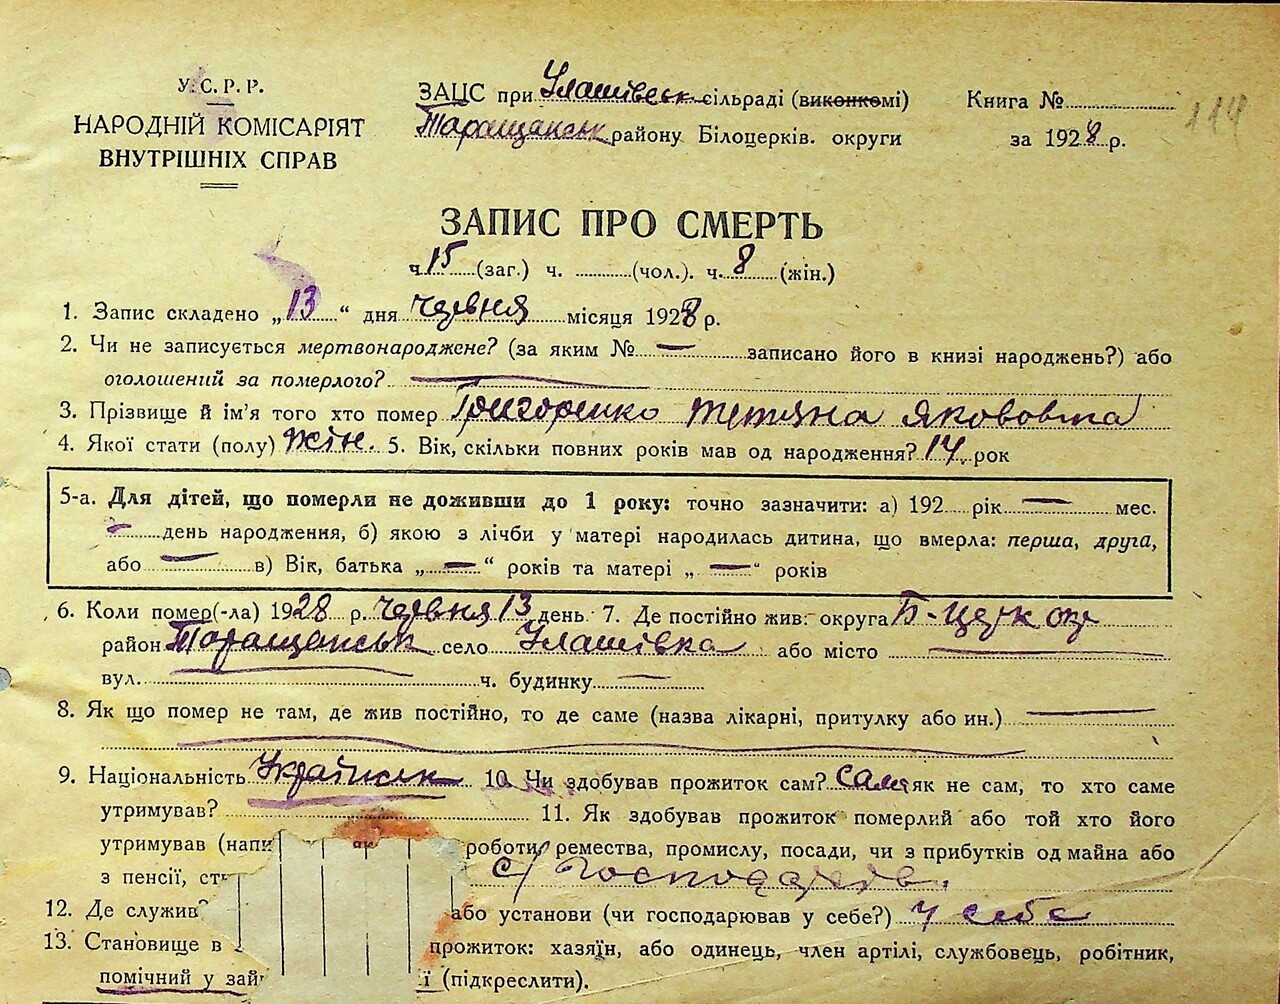 У.С.Р.Р.
НАРОДНІЙ КОМІСАРІЯТ
ВНУТРІШНІХ СПРАВ
ЗАЦС при Улашівськ сільраді (виконкомі)
Таращанськ району Білоцерків. округи
Книга №
114
за 1928 р.
ЗАПИС ПРО СМЕРТЬ
ч. 15 (заг.) ч. (чол.). ч. 8 (жін.)
1. Запис складено „13“ дня червня місяця 1928 р.
2. Чи не записується мертвонароджене? (за яким № — записано його в книзі народжень?) або
оголошений за померлого? —
3. Прізвище й ім'я того хто помер Григоренко Тетяна Якововна
4. Якої стати (полу) жін. 5. Вік, скільки повних років мав од народження? 14 рок
5-а. Для дітей, що померли не доживши до 1 року: точно зазначити: а) 192 рік — мес.
— день народження, б) якою з лічби у матері народилась дитина, що вмерла: перша, друга,
або — в) Вік, батька „—“ років та матері „—“ років
6. Коли помер(-ла) 1928 р. червня 13 день 7. Де постійно жив: округа Б-Церков
район Таращанськ село Улашівка або місто —
вул. — ч. будинку —
8. Як що помер не там, де жив постійно, то де саме (назва лікарні, притулку або ин.) —
9. Національність Українськ 10. Чи здобував прожиток сам? сам як не сам, то хто саме
утримував? 11. Як здобував прожиток померлий або той хто його
утримував (напи як роботи, ремества, промислу, посади, чи з прибутків од майна або
з пенсії, ст с/господарств.
12. Де служив? або установи (чи господарював у себе?) у себе
13. Становище в прожиток: хазяїн, або одинець, член артілі, службовець, робітник,
помічний у зай ї (підкреслити).